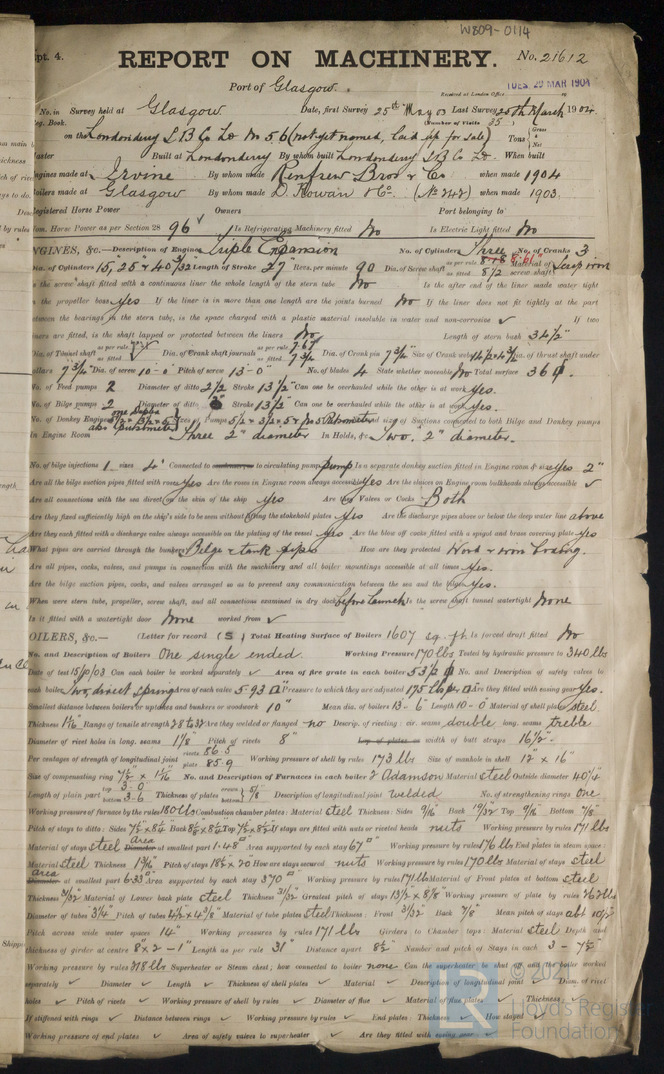 W809-0114
pt. 4.
REPORT ON MACHINERY.
No. 21612
Port of Glasgow.
Received at London Office TUES. 29 MAR 1904
No. in Survey held at Glasgow Date, first Survey 25th May 03 Last Survey 25th March 1904
Reg. Book. (Number of Visits 35)
on the Londonderry S.B. Co Ld No 56 (not yet named, laid up for sale) Tons Gross Net
Master Built at Londonderry By whom built Londonderry S.B. Co Ld. When built
Engines made at Irvine By whom made Renfrew Bros & Co when made 1904
Boilers made at Glasgow By whom made D. Rowan & Co. (No 242) when made 1903.
Registered Horse Power Owners Port belonging to
Nom. Horse Power as per Section 28 96 Is Refrigerating Machinery fitted No Is Electric Light fitted No
ENGINES, &c.—Description of Engines Triple Expansion No. of Cylinders Three No. of Cranks 3
Dia. of Cylinders 15", 25" & 40" Length of Stroke 27" Revs. per minute 90 Dia. of Screw shaft as per rule as fitted 8 1/2 Material of screw shaft Scrap iron
Is the screw shaft fitted with a continuous liner the whole length of the stern tube No Is the after end of the liner made water tight
in the propeller boss yes If the liner is in more than one length are the joints burned No If the liner does not fit tightly at the part
between the bearings in the stern tube, is the space charged with a plastic material insoluble in water and non-corrosive ✓ If two
liners are fitted, is the shaft lapped or protected between the liners No Length of stern bush 34 1/2"
Dia. of Tunnel shaft as per rule as fitted Dia. of Crank shaft journals as per rule 7.67 as fitted 7 3/4 Dia. of Crank pin 7 3/4" Size of Crank webs Dia. of thrust shaft under
collars 7 3/4" Dia. of screw 10-0" Pitch of screw 13-0" No. of blades 4 State whether moveable No Total surface 36
No. of Feed pumps 2 Diameter of ditto 2 1/2 Stroke 13 1/2" Can one be overhauled while the other is at work yes.
No. of Bilge pumps 2 Diameter of ditto Stroke 13 1/2" Can one be overhauled while the other is at work yes.
No. of Donkey Engines one Duplex Sizes of Pumps 5 1/2 × 3 1/2 × 5 No. and size of Suctions connected to both Bilge and Donkey pumps
In Engine Room Three 2" diameter In Holds, &c. Two. 2" diameter.
No. of bilge injections 1 sizes 4" Connected to circulating pump Is a separate donkey suction fitted in Engine room & size yes 2"
Are all the bilge suction pipes fitted with roses yes Are the roses in Engine room always accessible yes Are the sluices on Engine room bulkheads always accessible ✓
Are all connections with the sea direct on the skin of the ship yes Are they Valves or Cocks Both
Are they fixed sufficiently high on the ship's side to be seen without lifting the stokehold plates yes Are the discharge pipes above or below the deep water line above
Are they each fitted with a discharge valve always accessible on the plating of the vessel yes Are the blow off cocks fitted with a spigot and brass covering plate yes
What pipes are carried through the bunkers Bilge & tank pipes How are they protected Wood & iron Casing.
Are all pipes, cocks, valves, and pumps in connection with the machinery and all boiler mountings accessible at all times yes.
Are the bilge suction pipes, cocks, and valves arranged so as to prevent any communication between the sea and the bilges yes.
When were stern tube, propeller, screw shaft, and all connections examined in dry dock before launch Is the screw shaft tunnel watertight None
Is it fitted with a watertight door None worked from ✓
OILERS, &c.— (Letter for record (S) Total Heating Surface of Boilers 1607 sq. ft. Is forced draft fitted No
No. and Description of Boilers One single ended. Working Pressure 170 lbs Tested by hydraulic pressure to 340 lbs
Date of test 15/10/03 Can each boiler be worked separately ✓ Area of fire grate in each boiler 53 1/2 No. and Description of safety valves to
each boiler Two, direct Spring Area of each valve 5.93 Pressure to which they are adjusted 175 lbs Are they fitted with easing gear yes.
Smallest distance between boilers or uptakes and bunkers or woodwork 10" Mean dia. of boilers 13-6" Length 10-0" Material of shell plates steel
Thickness 1 1/16" Range of tensile strength 28 to 32 Are they welded or flanged no Descrip. of riveting: cir. seams double long. seams treble
Diameter of rivet holes in long. seams 1 1/8" Pitch of rivets 8" Lap of plates or width of butt straps 16 1/2".
Per centages of strength of longitudinal joint rivets 86.5 plate 85.9 Working pressure of shell by rules 173 lbs Size of manhole in shell 12" × 16"
Size of compensating ring 7 1/2" × 1 1/16" No. and Description of Furnaces in each boiler 2 Adamson Material steel Outside diameter 40 1/4"
Length of plain part top 3-0 bottom 3-6 Thickness of plates crown bottom 5/8 Description of longitudinal joint welded No. of strengthening rings one
Working pressure of furnace by the rules 180 lbs Combustion chamber plates: Material steel Thickness: Sides 9/16" Back 19/32" Top 9/16" Bottom 7/8"
Pitch of stays to ditto: Sides 7 1/2 × 8 1/4" Back 8 1/8 × 8 1/4 Top 7 1/2 × 8 1/2 If stays are fitted with nuts or riveted heads nuts Working pressure by rules 171 lbs
Material of stays steel Area Diameter at smallest part 1.48 Area supported by each stay 67 Working pressure by rules 176 lbs End plates in steam space:
Material steel Thickness 1 9/16" Pitch of stays 18 1/2 × 20 How are stays secured nuts Working pressure by rules 170 lbs Material of stays steel
Area Diameter at smallest part 6.33 Area supported by each stay 370 Working pressure by rules 171 lbs Material of Front plates at bottom steel
Thickness 31/32" Material of Lower back plate steel Thickness 31/32" Greatest pitch of stays 13 1/2 × 8 5/8" Working pressure of plate by rules
Diameter of tubes 3 1/4" Pitch of tubes 4 1/2 × 4 3/8" Material of tube plates steel Thickness: Front 31/32 Back 7/8" Mean pitch of stays abt 10 1/2"
Pitch across wide water spaces 14" Working pressures by rules 171 lbs Girders to Chamber tops: Material steel Depth and
thickness of girder at centre 8 × 2 - 1" Length as per rule 31" Distance apart 8 1/2 Number and pitch of Stays in each 3 - 7 1/2
Working pressure by rules 218 lbs Superheater or Steam chest; how connected to boiler none Can the superheater be shut off and the boiler worked
separately ✓ Diameter ✓ Length ✓ Thickness of shell plates ✓ Material ✓ Description of longitudinal joint ✓ Diam. of rivet
holes ✓ Pitch of rivets ✓ Working pressure of shell by rules ✓ Diameter of flue ✓ Material of flue plates ✓ Thickness ✓
If stiffened with rings ✓ Distance between rings ✓ Working pressure by rules ✓ End plates: Thickness ✓ How stayed ✓
Working pressure of end plates ✓ Area of safety valves to superheater ✓ Are they fitted with easing gear ✓
© 2021
Lloyd's Register
Foundation